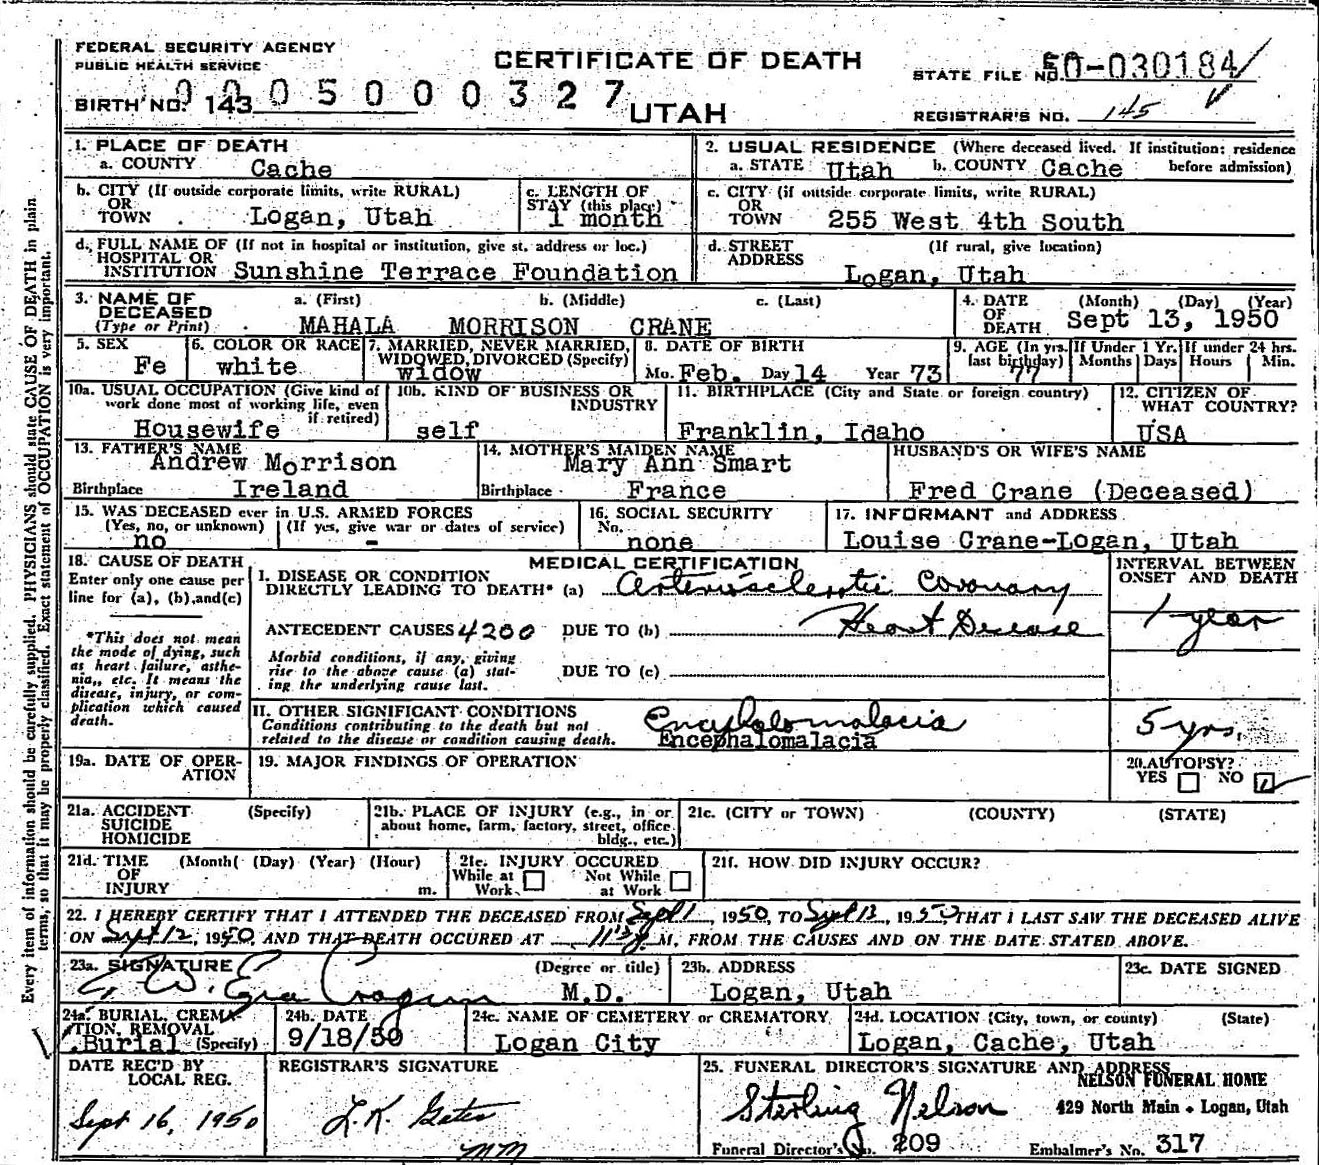 FEDERAL SECURITY AGENCY
PUBLIC HEALTH SERVICE
CERTIFICATE OF DEATH
STATE FILE NO. 50-030184
BIRTH NO. 143
0005000327
UTAH
REGISTRAR'S NO. 145
1. PLACE OF DEATH
a. COUNTY Cache
2. USUAL RESIDENCE (Where deceased lived. If institution: residence before admission)
a. STATE Utah b. COUNTY Cache
b. CITY (If outside corporate limits, write RURAL)
OR
TOWN Logan, Utah
c. LENGTH OF
STAY (this place)
1 month
c. CITY (if outside corporate limits, write RURAL)
OR
TOWN 255 West 4th South
d. FULL NAME OF (If not in hospital or institution, give st. address or loc.)
HOSPITAL OR
INSTITUTION Sunshine Terrace Foundation
d. STREET (If rural, give location)
ADDRESS
Logan, Utah
3. NAME OF a. (First) b. (Middle) c. (Last)
DECEASED
(Type or Print) MAHALA MORRISON CRANE
4. DATE (Month) (Day) (Year)
OF
DEATH Sept 13, 1950
5. SEX
Fe
6. COLOR OR RACE
white
7. MARRIED, NEVER MARRIED,
WIDOWED, DIVORCED (Specify)
widow
8. DATE OF BIRTH
Mo. Feb. Day 14 Year 73
9. AGE (In yrs. last birthday)
77
If Under 1 Yr.
Months Days
If under 24 hrs.
Hours Min.
10a. USUAL OCCUPATION (Give kind of
work done most of working life, even
if retired)
Housewife
10b. KIND OF BUSINESS OR
INDUSTRY
self
11. BIRTHPLACE (City and State or foreign country)
Franklin, Idaho
12. CITIZEN OF
WHAT COUNTRY?
USA
13. FATHER'S NAME
Andrew Morrison
Birthplace Ireland
14. MOTHER'S MAIDEN NAME
Mary Ann Smart
Birthplace France
HUSBAND'S OR WIFE'S NAME
Fred Crane (Deceased)
15. WAS DECEASED ever in U.S. ARMED FORCES
(Yes, no, or unknown) (If yes, give war or dates of service)
no -
16. SOCIAL SECURITY
No.
none
17. INFORMANT and ADDRESS
Louise Crane-Logan, Utah
18. CAUSE OF DEATH
Enter only one cause per
line for (a), (b), and (c)
*This does not mean
the mode of dying, such
as heart failure, asthe-
nia, etc. It means the
disease, injury, or com-
plication which caused
death.
MEDICAL CERTIFICATION
INTERVAL BETWEEN
ONSET AND DEATH
I. DISEASE OR CONDITION
DIRECTLY LEADING TO DEATH* (a) Arteriosclerotic Coronary
ANTECEDENT CAUSES 4200 DUE TO (b) Heart Disease
1 year
Morbid conditions, if any, giving
rise to the above cause (a) stat-
ing the underlying cause last.
DUE TO (c)
II. OTHER SIGNIFICANT CONDITIONS
Conditions contributing to the death but not
related to the disease or condition causing death.
Encephalomalacia
Encephalomalacia
5 yrs.
19a. DATE OF OPER-
ATION
19. MAJOR FINDINGS OF OPERATION
20. AUTOPSY?
YES NO
21a. ACCIDENT (Specify)
SUICIDE
HOMICIDE
21b. PLACE OF INJURY (e.g., in or
about home, farm, factory, street, office
bldg., etc.)
21c. (CITY or TOWN) (COUNTY) (STATE)
21d. TIME (Month) (Day) (Year) (Hour)
OF
INJURY m.
21e. INJURY OCCURED
While at Work Not While at Work
21f. HOW DID INJURY OCCUR?
22. I HEREBY CERTIFY THAT I ATTENDED THE DECEASED FROM Sept 1, 1950, TO Sept 13, 1950, THAT I LAST SAW THE DECEASED ALIVE
ON Sept 12, 1950, AND THAT DEATH OCCURED AT M, FROM THE CAUSES AND ON THE DATE STATED ABOVE.
23a. SIGNATURE (Degree or title)
W. Ezra Cragun M.D.
23b. ADDRESS
Logan, Utah
23c. DATE SIGNED
24a. BURIAL, CREMA-
TION, REMOVAL
Burial (Specify)
24b. DATE
9/18/50
24c. NAME OF CEMETERY or CREMATORY
Logan City
24d. LOCATION (City, town, or county) (State)
Logan, Cache, Utah
DATE REC'D BY
LOCAL REG.
Sept 16, 1950
REGISTRAR'S SIGNATURE
L.K. Gates
MM
25. FUNERAL DIRECTOR'S SIGNATURE AND ADDRESS
NELSON FUNERAL HOME
Sterling Nelson 429 North Main • Logan, Utah
Funeral Director's No. 209 Embalmer's No. 317
Every item of information should be carefully supplied. PHYSICIANS should state CAUSE OF DEATH in plain
terms, so that it may be properly classified. Exact statement of OCCUPATION is very important.